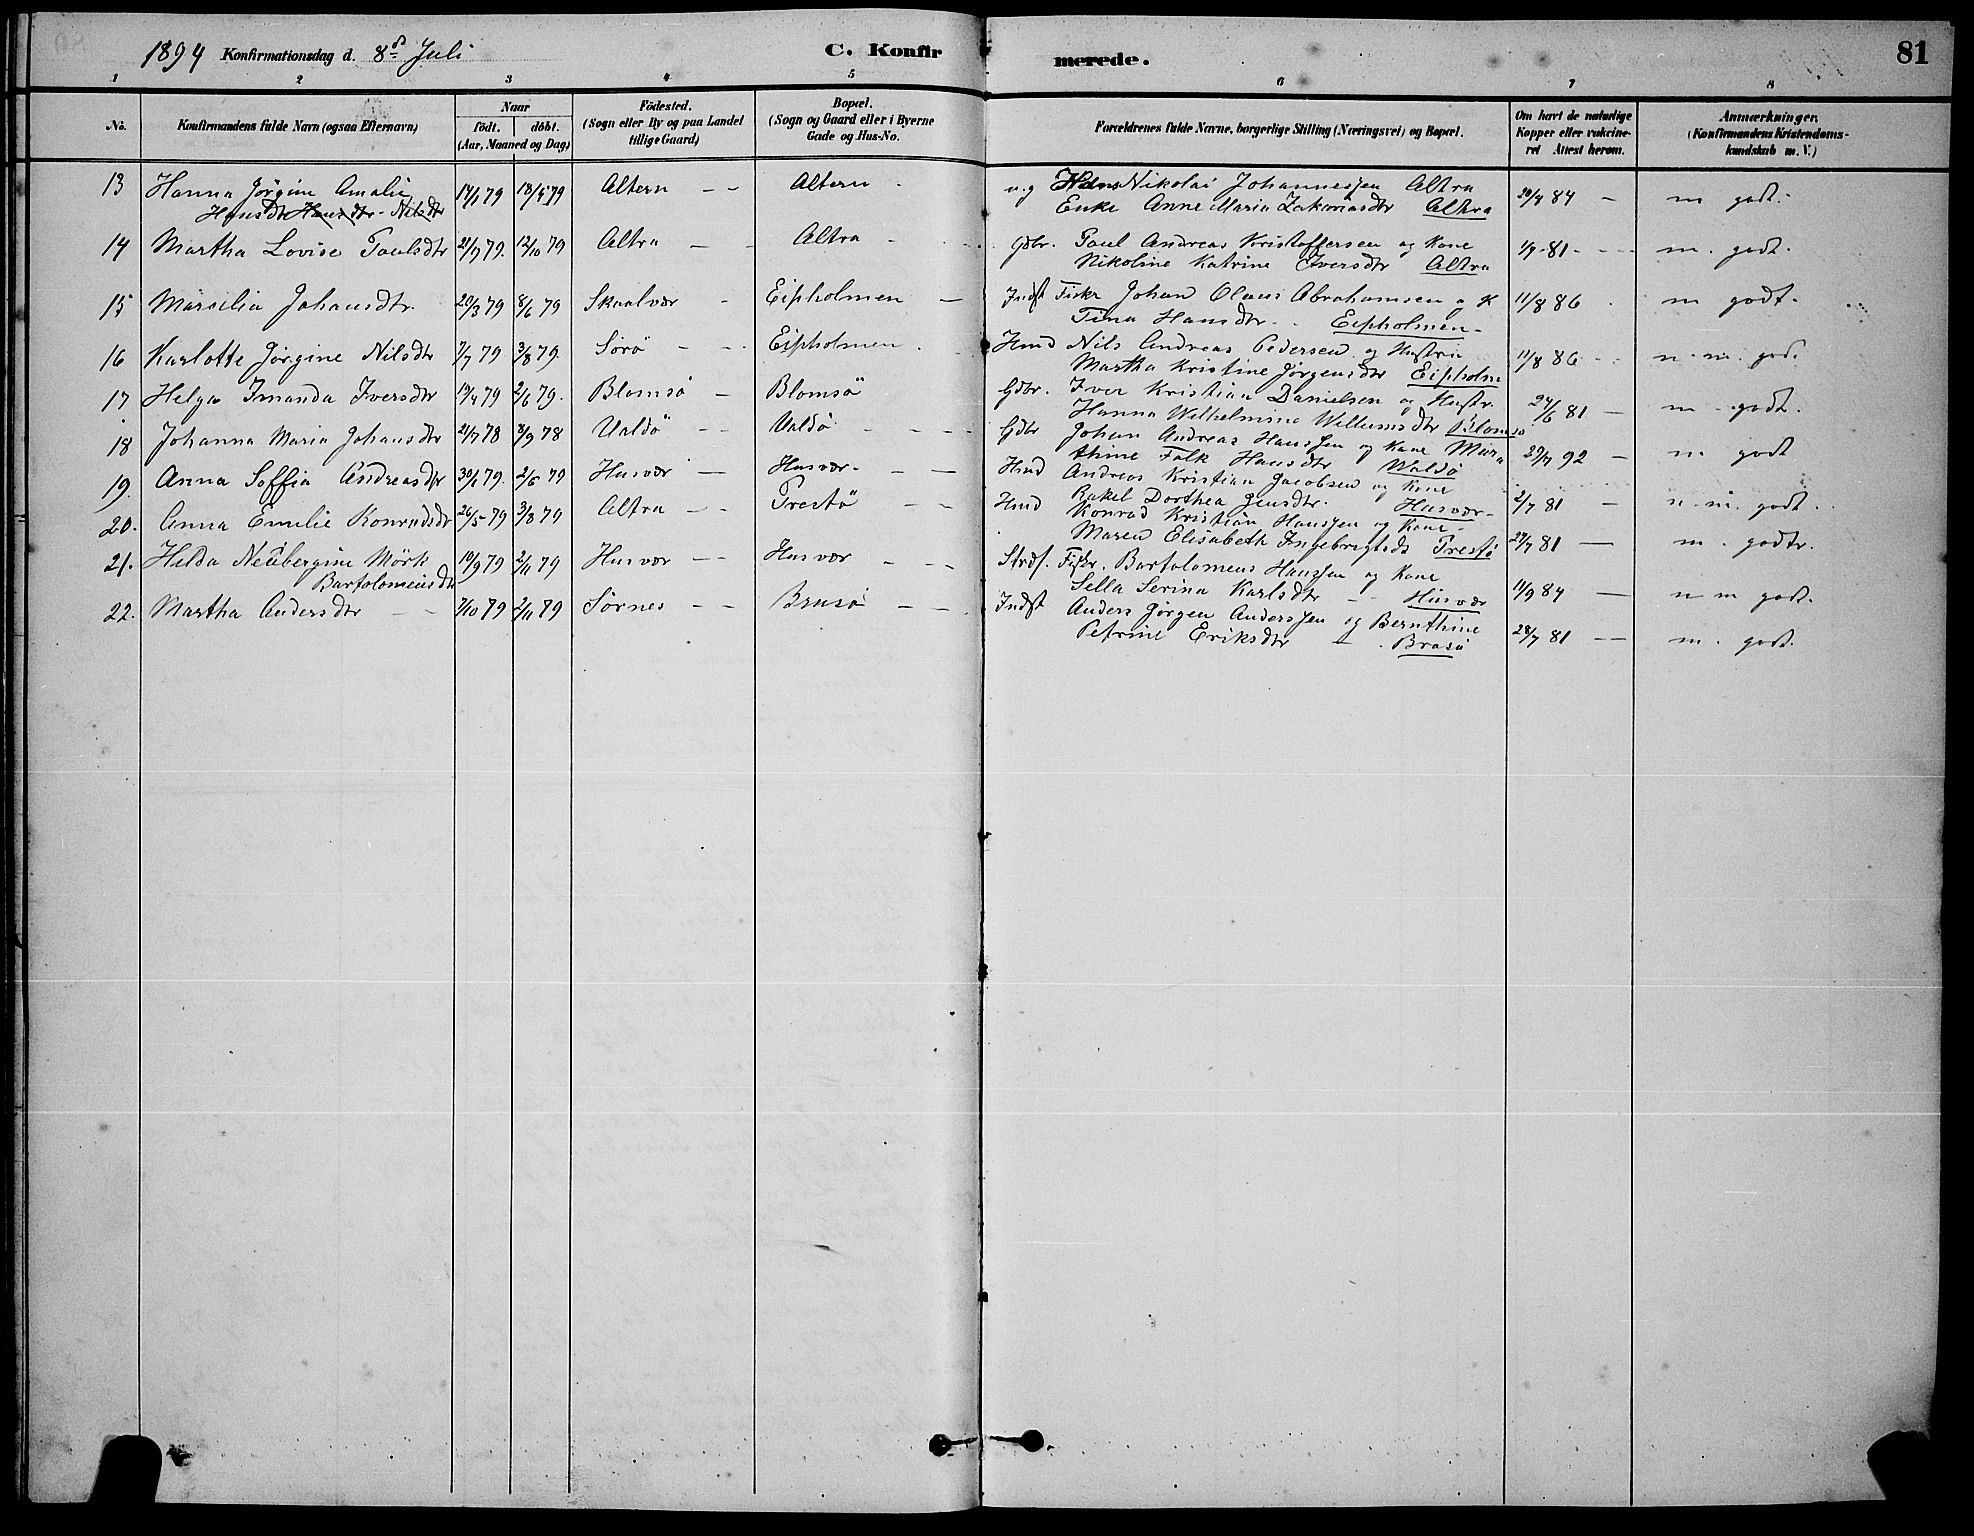 1894 Konfirmationsdag d. 8de Juli C. Konfirmerede. 81
1 2 3 4 5 6 7 8
No. Konfirmandens fulde Navn (ogsaa Efternavn) Naar födt. döbt. (Aar, Maaned og Dag) Födested. (Sogn eller By og paa Landet tillige Gaard) Bopæl. (Sogn og Gaard eller i Byerne Gade og Hus-No. Forældrenes fulde Navne, borgerlige Stilling (Næringsvei) og Bopæl. Om havt de naturlige Kopper eller vakcineret Attest herom. Anmærkninger. (Konfirmandens Kristendomskundskab m. V.)
13 Hanna Jörgine Amalie 14/1 79 18/5 79 Altern - - Altern - u.g Hans Nikolai Johannessen Altra 20/4 84 - m godt.
Hansdtr Hansdtr - Nilsdtr Enke Anne Maria Zakariasdtr Altra
14 Martha Lovise Paulsdtr 21/9 79. 12/10 79 Altra - - Altra - Gdbr. Paul Andreas Kristoffersen og Kone 1/9 81 - m. godt.
Nikoline Katrine Iversdtr Altra
15 Marselia Johansdtr. 20/3 79 8/6 79 Skaalvær - Eipholmen - Indst Fiskr Johan Olaus Abrahamsen og K 11/8 86 m godt.
Tina Hansdtr. Eipholmen -
16 Karlotte Jørgine Nilsdtr 7/7 79 3/8 79. Sörö - - Eipholmen. Hmd Nils Andreas Pedersen og Hustru 11/8 86 n. m. god.
Martha Kristine Jørgensdtr Eipholm
17 Helga Imanda Iversdtr 19/4 79 2/6 79. Blomsö - Blomsö Gdbr. Iver Kristian Danielsen og Hustr. 24/6 81 - m - godt.
Hanna Wilhelmine Willumsdtr Blomsö
18 Johanna Maria Johansdtr 21/7 78 3/9 78 Ualdö - - Ualdö - - - Gdbr Johan Andreas Hanssen og Kone Mara 29/7 92 - m godt
thine Falk Hansdtr Waldö
19. Anna Soffia Andreasdtr 30/1 79. 2/6 79 Husvær - Husvær - - - Hmd Andreas Kristian Jacobsen og Kone 2/7 81 - n. m. godt.
Rakel Dorthea Jensdtr. Husvær -
20. Anna Emelie Konradsdtr 26/5 79 3/8 79 Altra - - Prestö - - Hmd Konrad Kristian Hanssen og Kone - 27/7 81 - m. godtr.
Maren Elisabeth Ingebrigtsdt Prestö
21. Helda Neubergine Mörk 10/9 79 2/11 79 Husvær - - Husvær - - - Strds. Fiskr. Bartolomeus Hanssen og Kone 11/9 84 - n m godt.
Bartolomeusdtr Sella Serina Karlsdtr - - Husvær
22. Martha Andersdtr - - 7/10 79 2/11 79 Sörnes - - Brasö - - Indst Anders Jörgen Anderssen og Bernthine 28/7 81 - - m. godt.
Petrine Eriksdtr - . Brasö